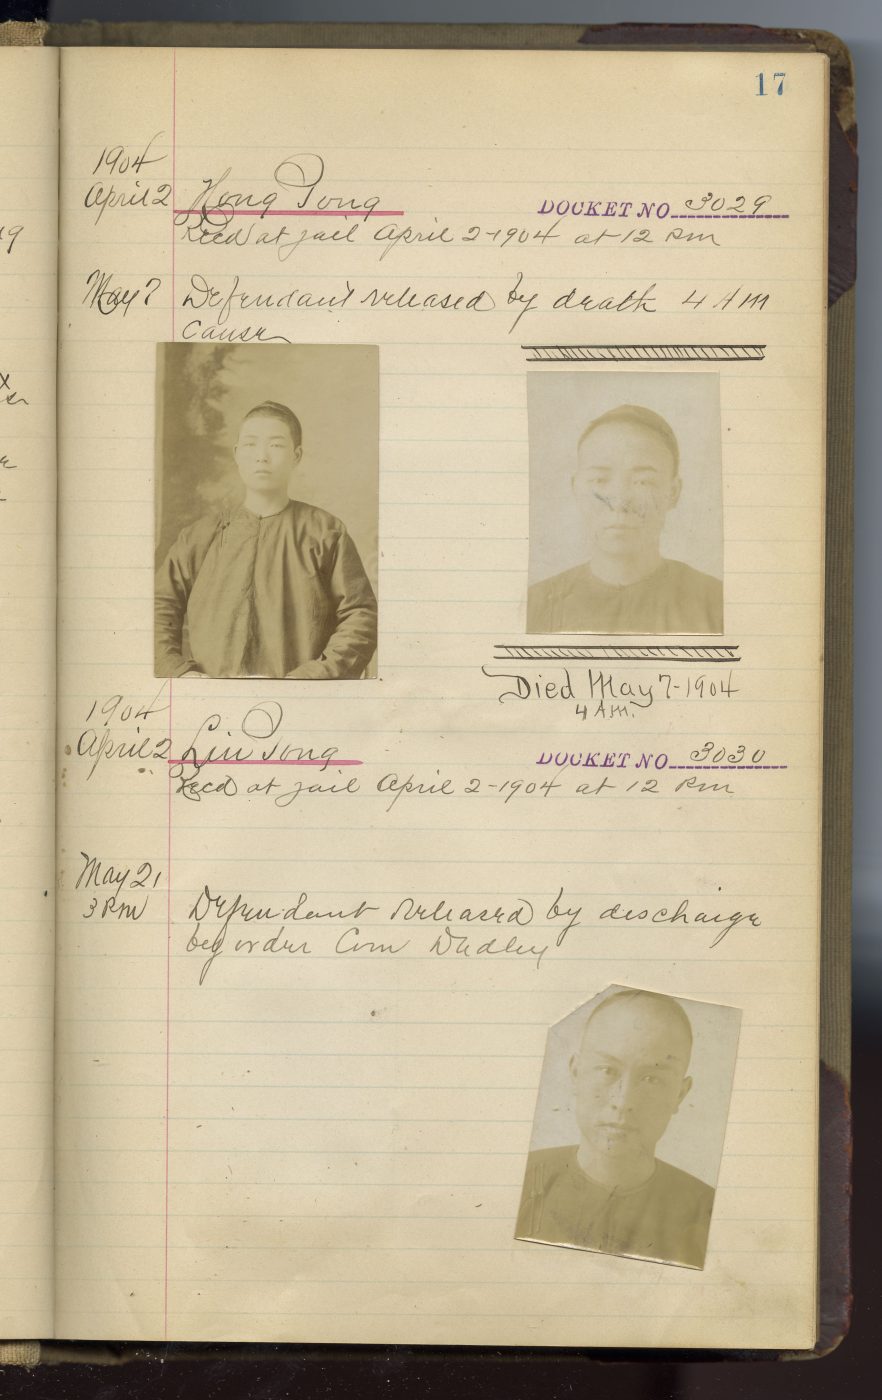 17
1904
April 2 Hong Pong DOCKET NO 3029
Recd at jail April 2-1904 at 12 Pm
May 7 Defendant released by death 4 AM
Cause
Died May 7-1904
4 A.m.
1904
April 2 Liu Pong DOCKET NO 3030
Recd at jail April 2-1904 at 12 Pm
May 21
3 Pm Defendant released by discharge
by order Com Dudley